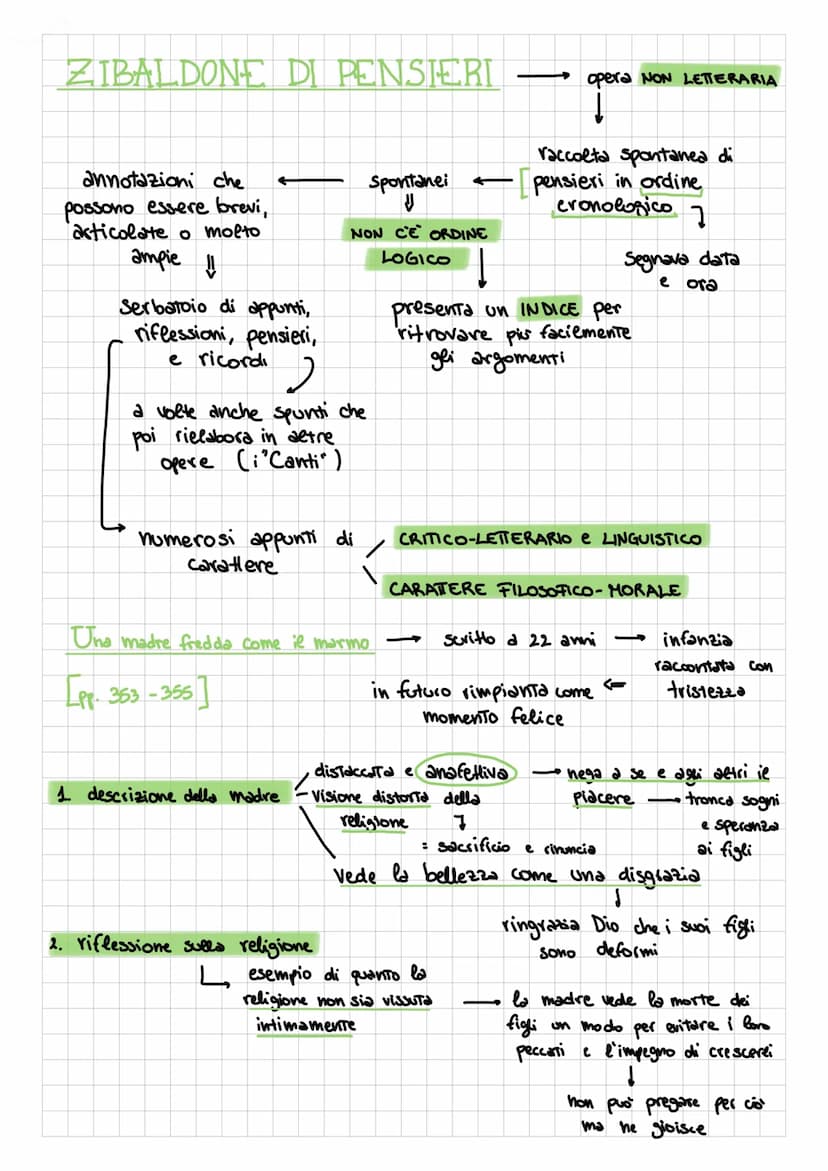 ZIBALDONE DI PENSIERI → opera NON LETTERARIA
raccolta spontanea di
[pensieri in ordine
cronologico
Segnava data
e ora
spontanei
NON C'E' ORDINE
LOGICO
annotazioni che
possono essere brevi,
articolate o molto
ampie
presenta un INDICE per
ritrovare più facilmente
gli argomenti
Serbatoio di appunti,
riflessioni, pensieri,
e ricordi
a volte anche spunti che
poi rielabora in altre
opere (i "Canti")
numerosi appunti di
carattere
CRITICO-LETTERARIO e LINGUISTICO
CARATTERE FILOSOFICO-MORALE
Una madre fredda come il marmo → scritto a 22 anni → infanzia
raccontata con
tristezza
[pp. 353-355]
in futuro rimpianta come
momento felice
1. descrizione della madre
distaccata e anafettiva → nega a se e agli altri il
piacere → tronca sogni
e speranza
ai figli
Visione distorta della
religione
= sacrificio e rinuncia
Vede la bellezza come una disgrazia
ringrazia Dio che i suoi figli
sono deformi
2. riflessione sulla religione
esempio di quanto la
religione non sia vissuta
intimamente
→ la madre vede la morte dei
figli un modo per evitare i loro
peccati e l'impegno di crescerli
non può pregare per ciò
ma ne gioisce